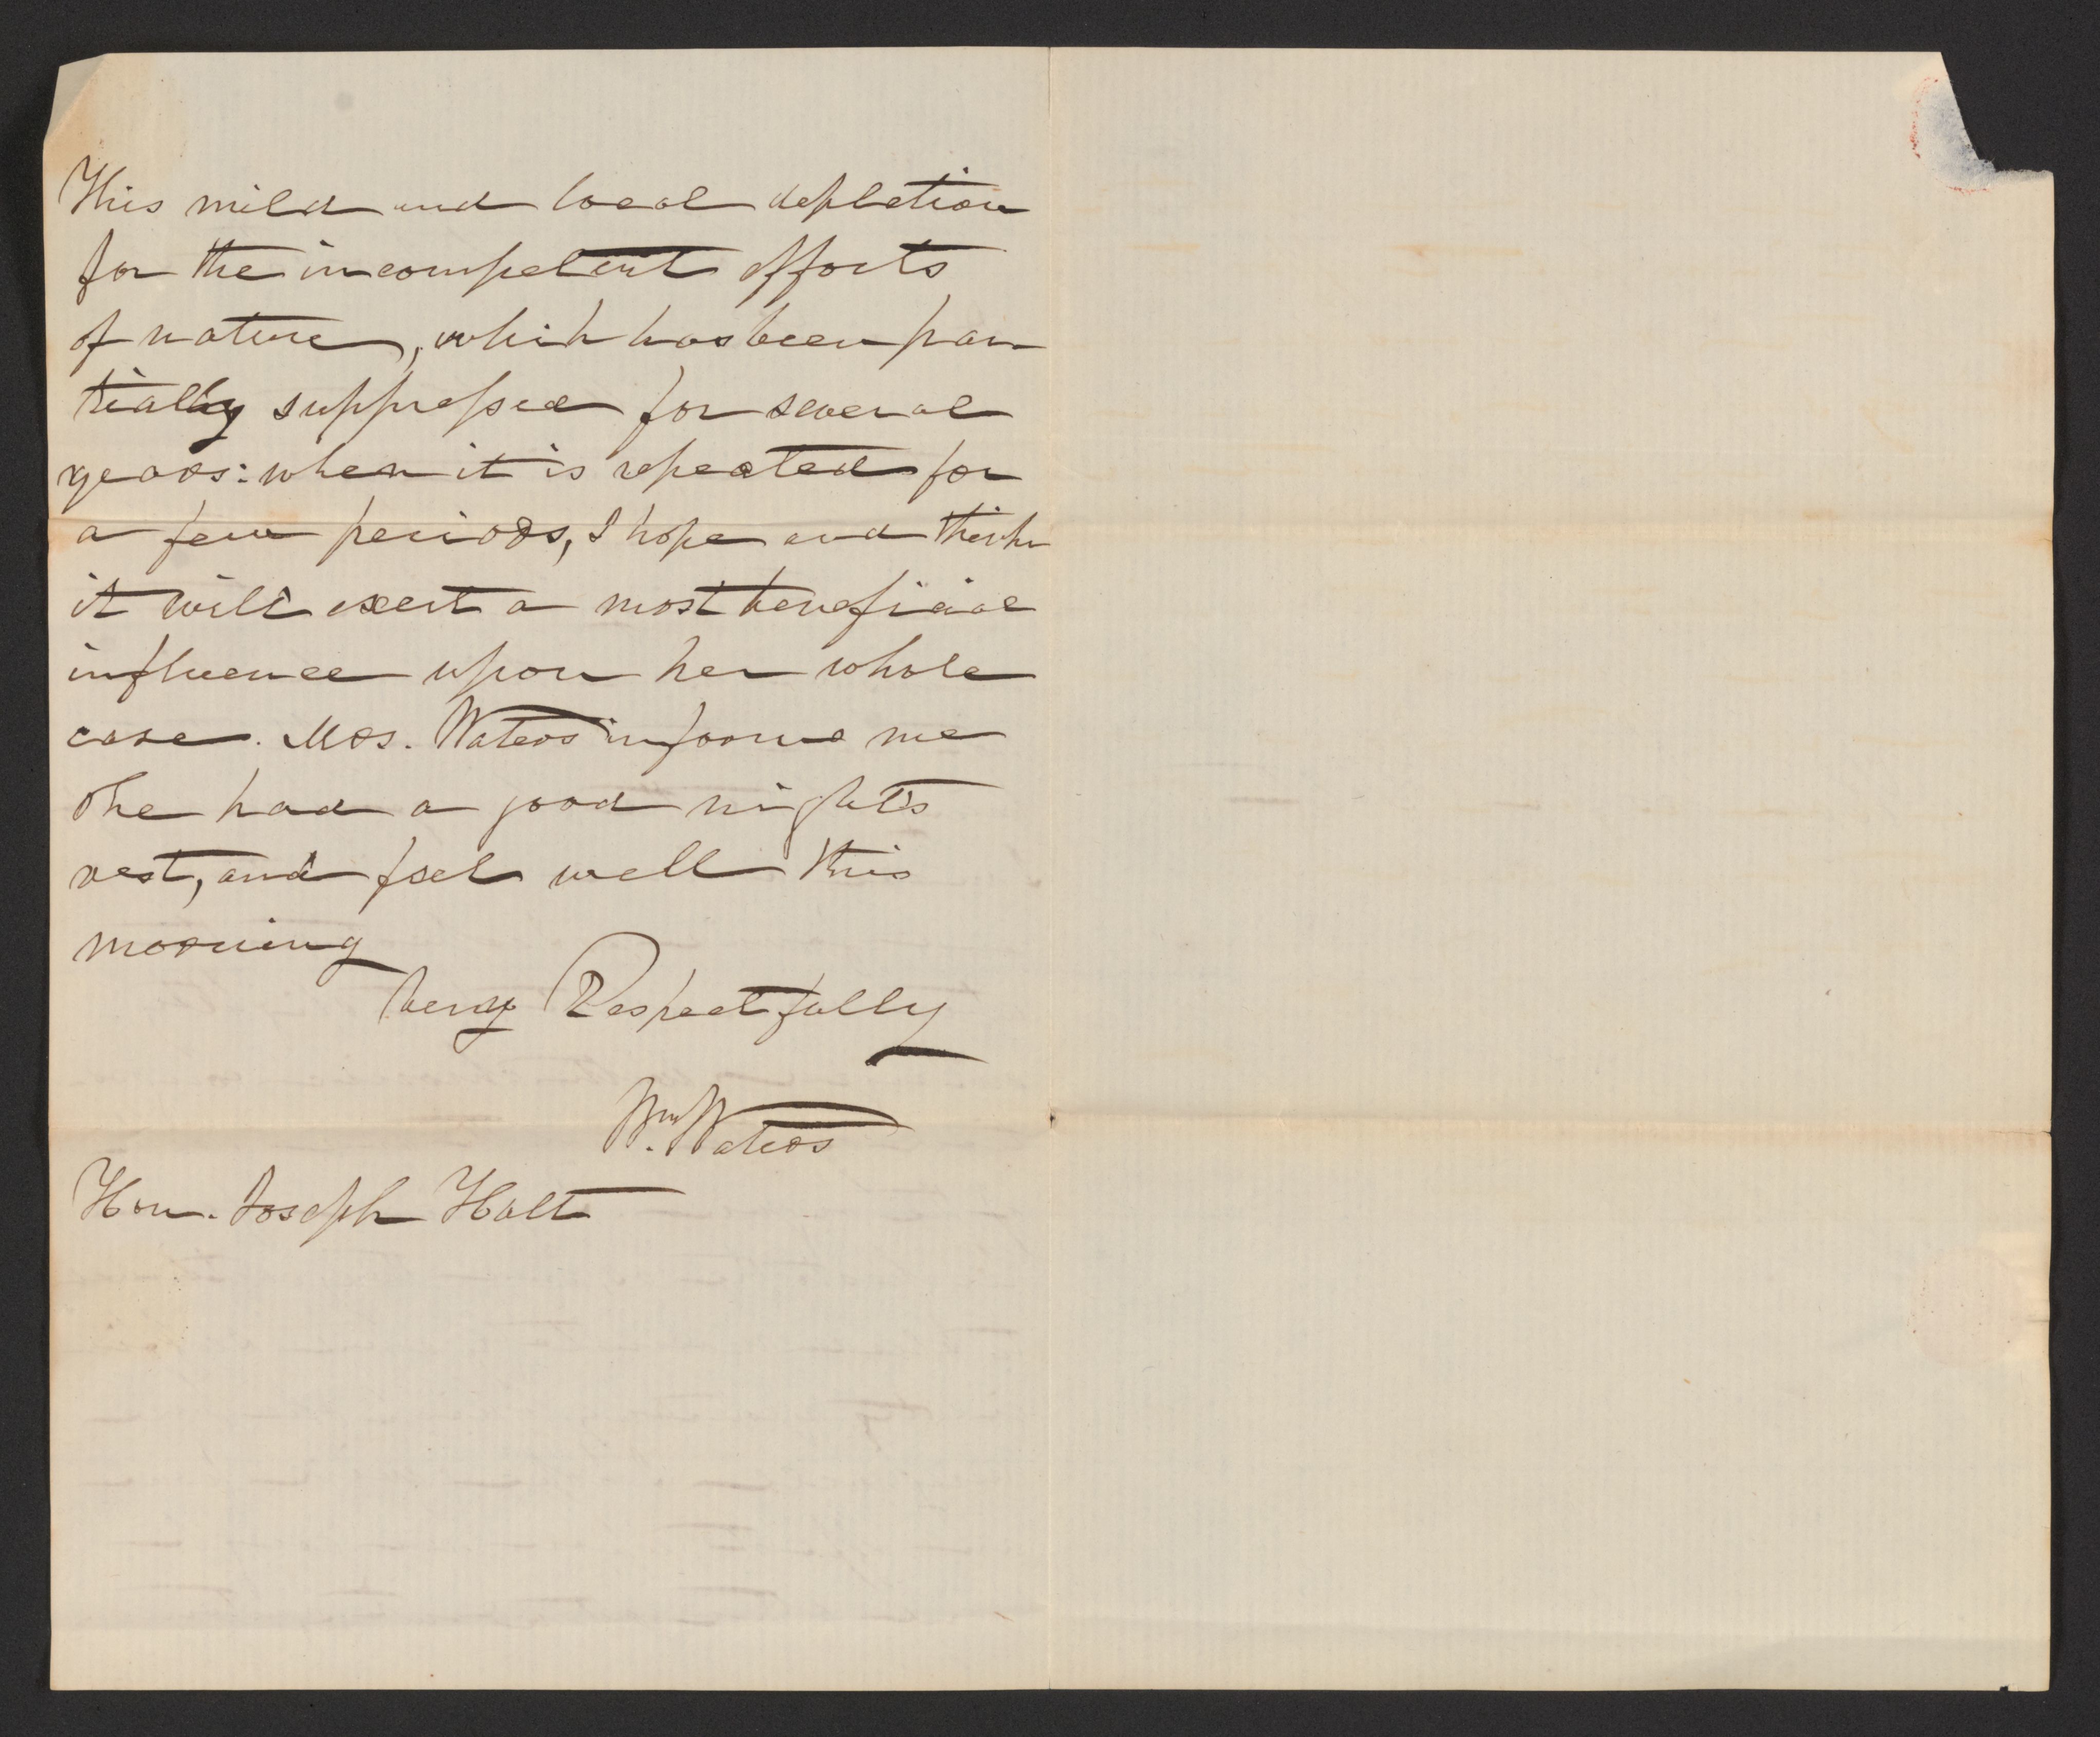 This mild and local depletion
for the incompetent efforts
of nature, which has been par
tially suppressed for several
years: when it is repeated for
a few periods, I hope and think
it will exert a most beneficial
influence upon her whole
case. Mrs. Waters informs me
she had a good night's
rest, and feel well this
morning
Very Respectfully
Wm. Waters
Hon. Joseph Holt